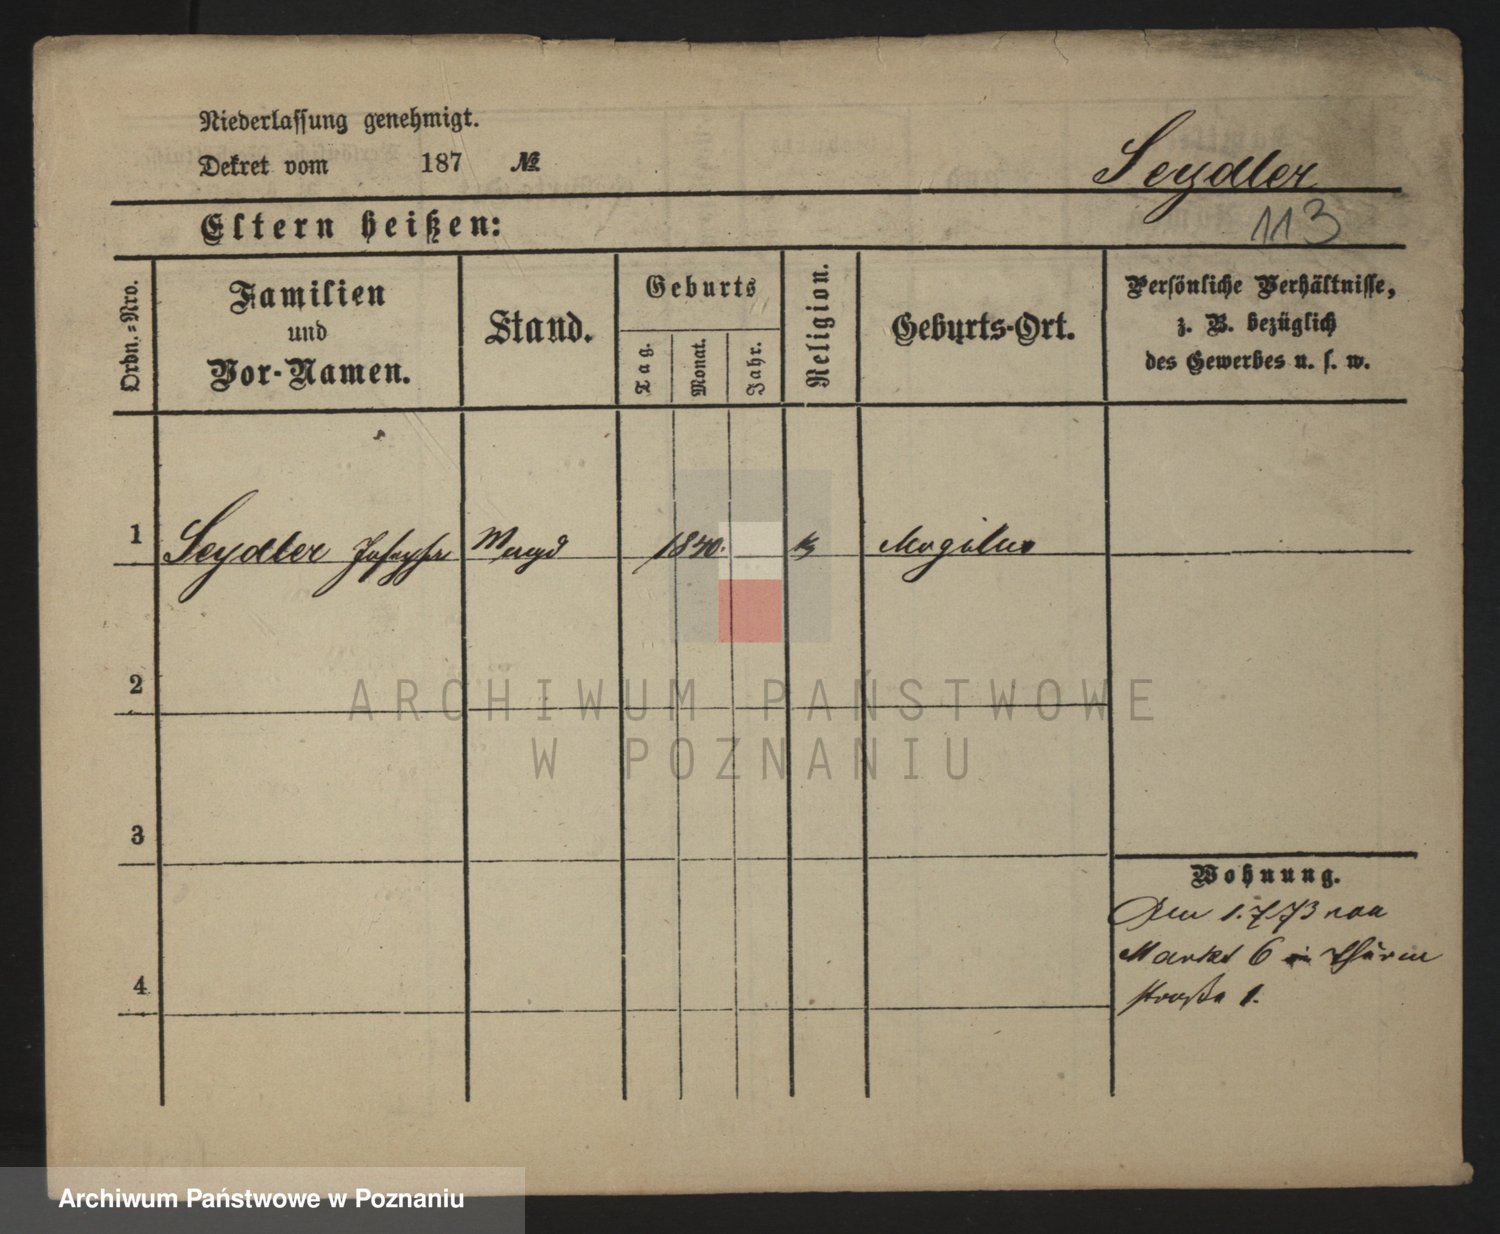 Niederlassung genehmigt.
Dekret vom 187 №
Seydler
Eltern heißen:
113
Ordn.=Nro.
Familien
und
Vor-Namen.
Stand.
Geburts
Tag.
Monat.
Jahr.
Religion.
Geburts-Ort.
Persönliche Verhältnisse,
z. B. bezüglich
des Gewerbes u. s. w.
1 Seydler 1840. k Mogilno
2
ARCHIWUM PAŃSTWOWE
W POZNANIU
3
Wohnung.
Den 1.7.73 von
Markt 6 Thurm
4
straße 1.
Archiwum Państwowe w Poznaniu